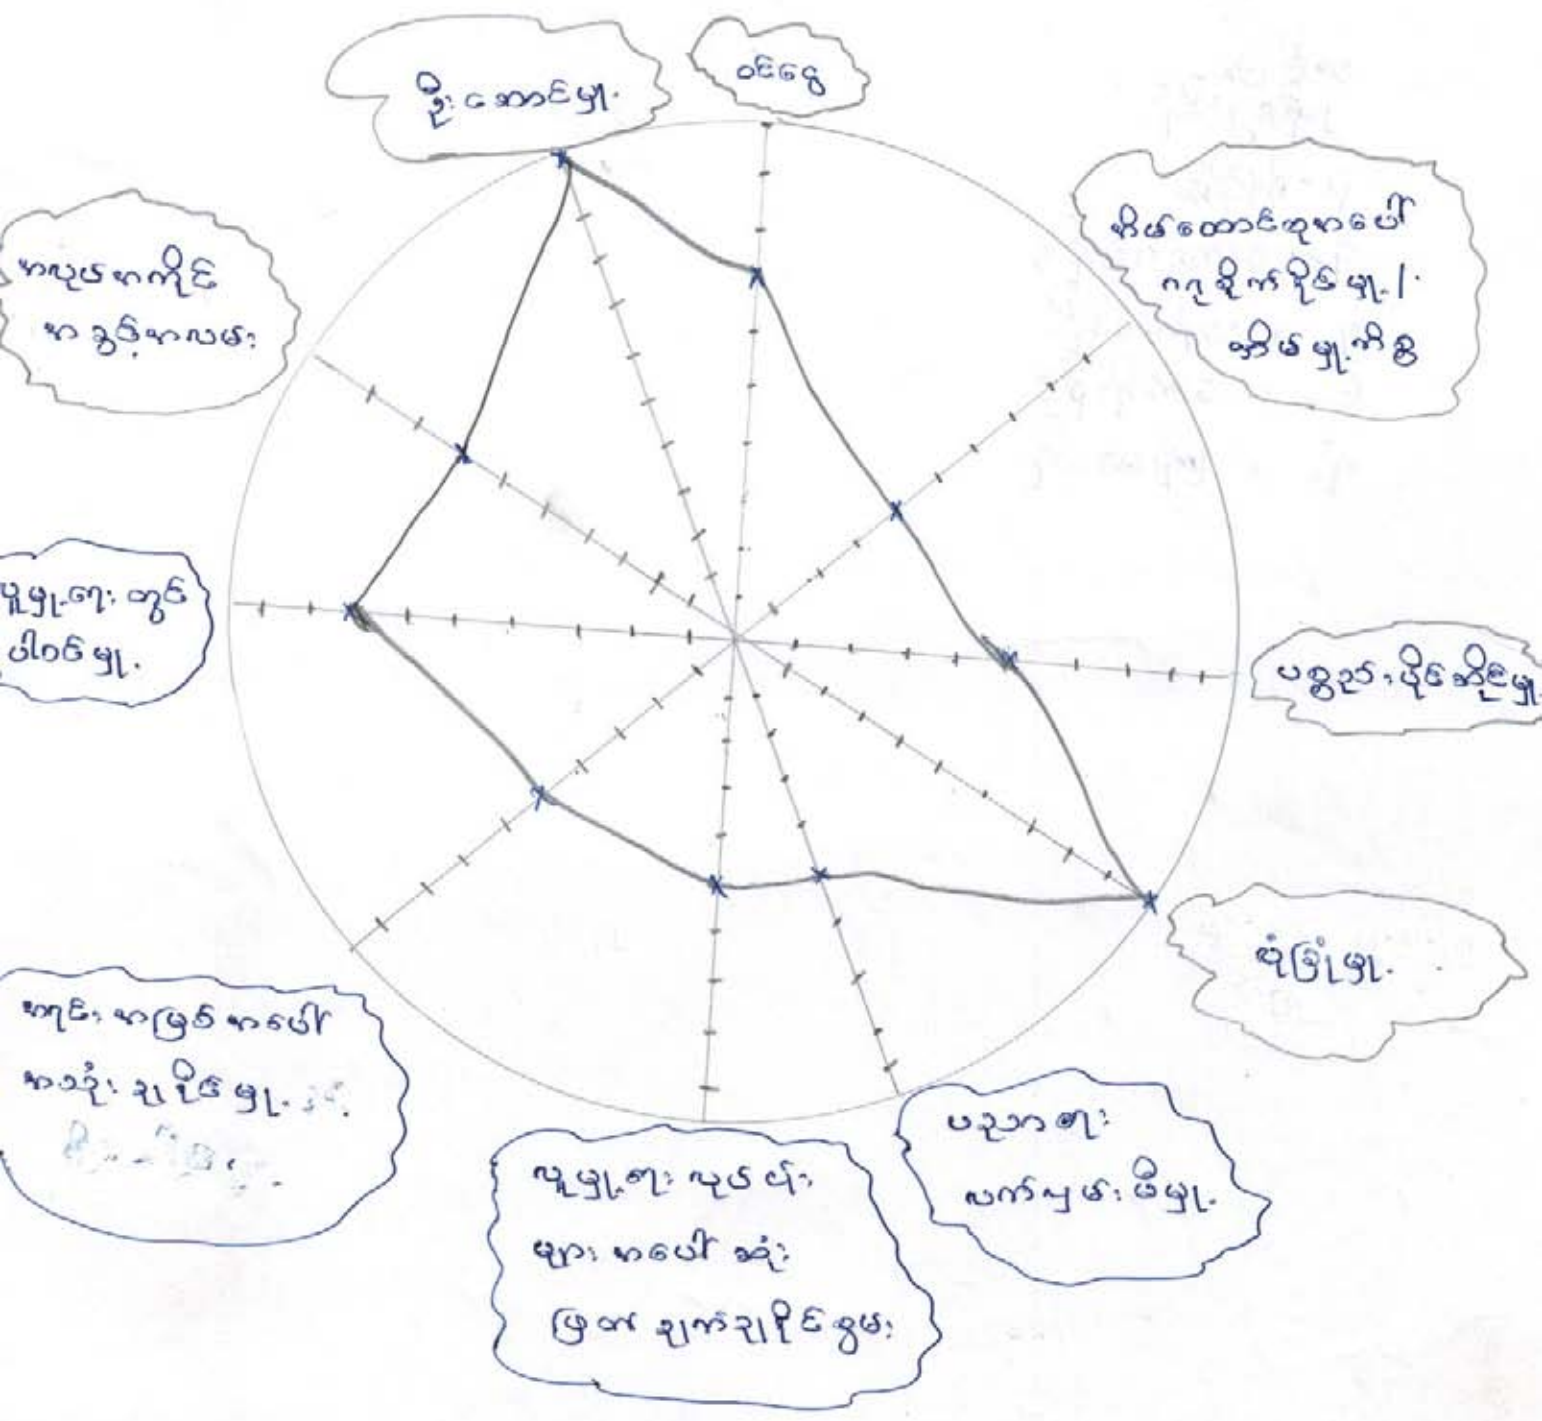 ဝင်ငွေ
ဦးဆောင်မှု
အိမ်ထောင်စုအပေါ်
ဂရုစိုက်နိုင်မှု/
အိမ်မှုကိစ္စ
ပစ္စည်းပိုင်ဆိုင်မှု
ယုံကြည်မှု
ပညာရေး
လက်လှမ်းမီမှု
လူမှုရေးလုပ်ငန်း
များအပေါ်ဆုံး
ဖြတ်ချက်ချနိုင်စွမ်း
အရင်းအမြစ်အပေါ်
အသုံးချနိုင်မှု
လူမှုရေးတွင်
ပါဝင်မှု
အလုပ်အကိုင်
အခွင့်အလမ်း